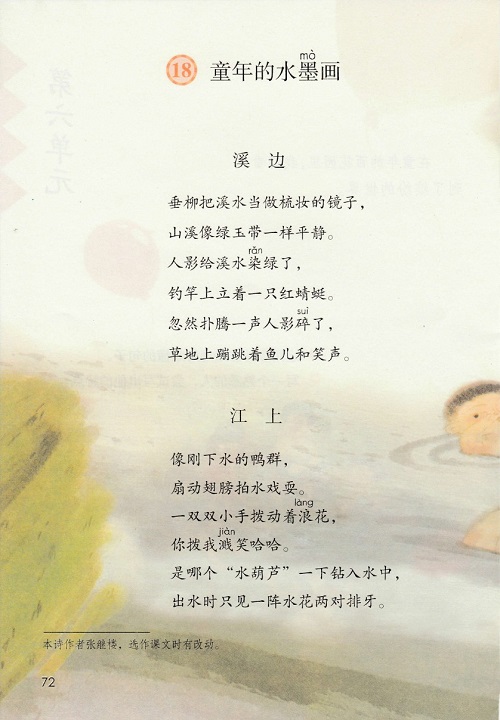 mò
18 童年的水墨画
溪 边
垂柳把溪水当做梳妆的镜子，
山溪像绿玉带一样平静。
rǎn
人影给溪水染绿了，
钓竿上立着一只红蜻蜓。
suì
忽然扑腾一声人影碎了，
草地上蹦跳着鱼儿和笑声。
江 上
像刚下水的鸭群，
扇动翅膀拍水戏耍。
làng
一双双小手拨动着浪花，
jiàn
你拨我溅笑哈哈。
是哪个“水葫芦”一下钻入水中，
出水时只见一阵水花两对排牙。
本诗作者张继楼，选作课文时有改动。
72
第六单元